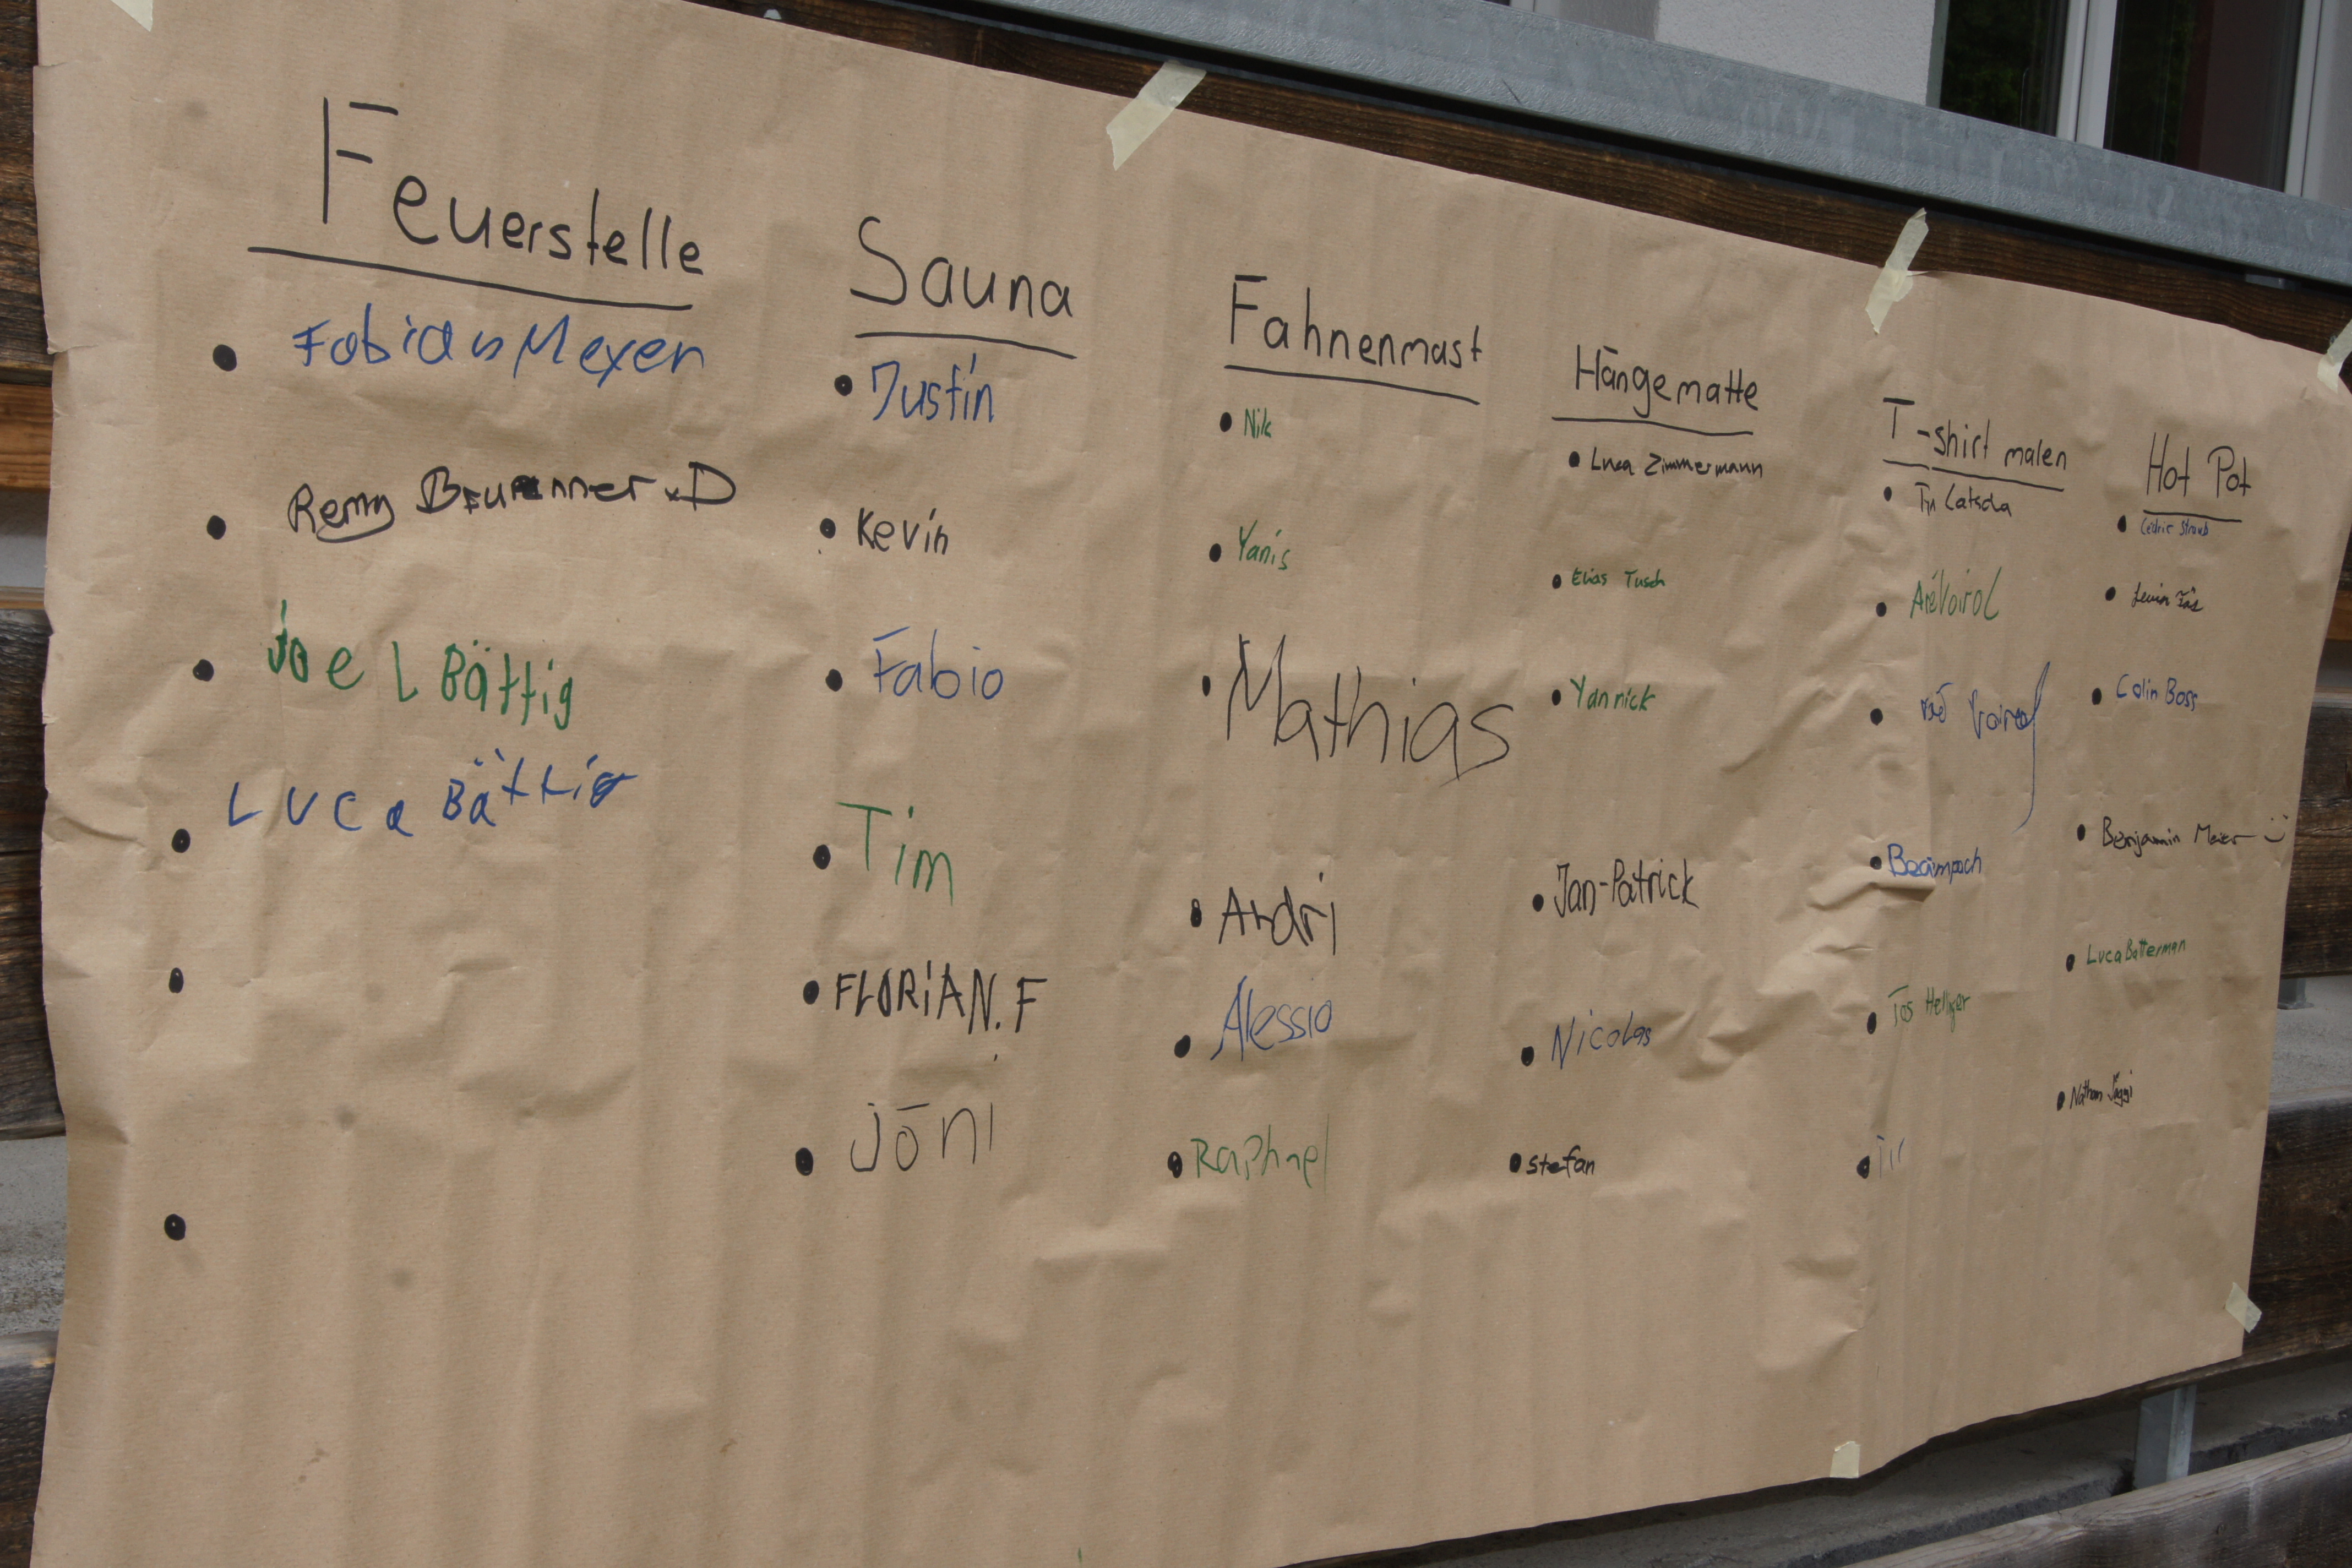 Feuerstelle
Fabian Meyer
Remy Brunner xD
Joel Bättig
Luca Bättig
Sauna
Justin
Kevin
Fabio
Tim
FLORIAN.F
Jōni
Fahnenmast
Nik
Yanis
Mathias
Andri
Alessio
Raphael
Hängematte
Luca Zimmermann
Elias Tusch
Yannick
Jan-Patrick
Nicolas
Stefan
T-shirt malen
Hot Pot
Cédric Straub
Colin Boss
Benjamin Meier :)
Luca Batterman
Nathan Jäggi